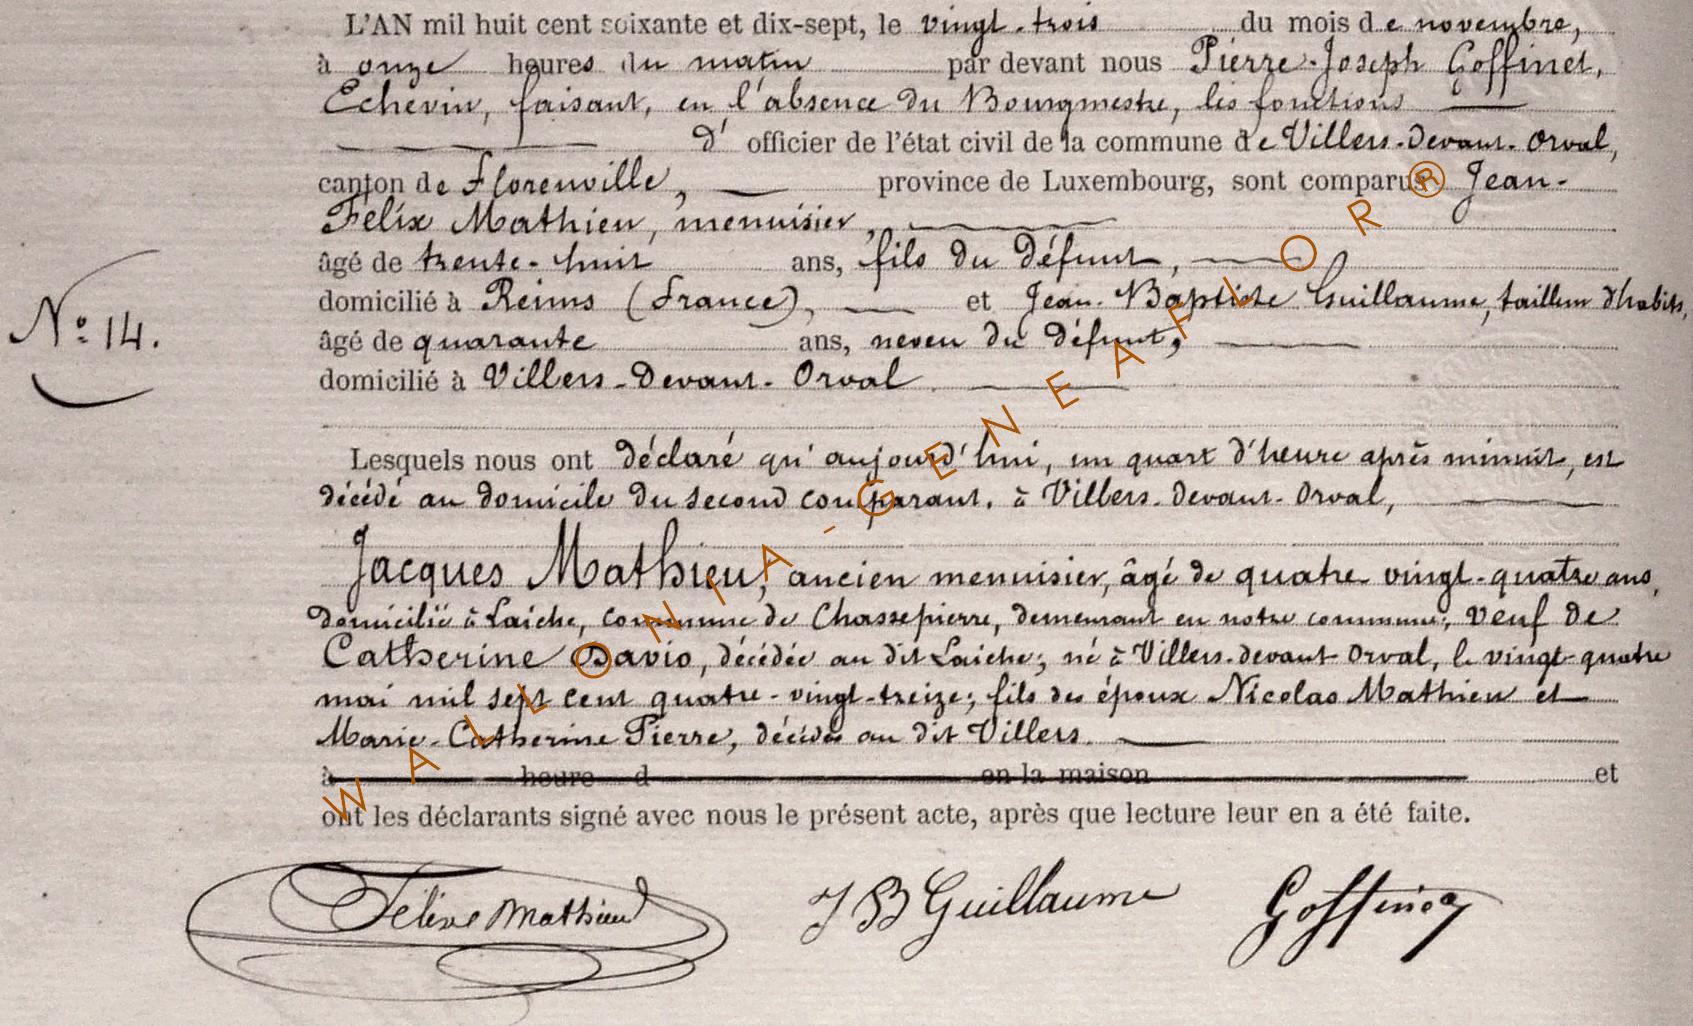 L'AN mil huit cent soixante et dix-sept, le vingt-trois du mois de novembre,
à onze heures du matin par devant nous Pierre-Joseph Goffinet,
Echevin, faisant, en l'absence du Bourgmestre, les fonctions
d' officier de l'état civil de la commune de Villers-devant-Orval,
canton de Florenville, province de Luxembourg, sont comparus Jean-
Félix Mathieu, menuisier,
âgé de trente-huit ans, fils du défunt,
domicilié à Reims (France), et Jean-Baptiste Guillaume, tailleur d'habits,
N° 14.
âgé de quarante ans, neveu du défunt,
domicilié à Villers-Devant-Orval
Lesquels nous ont déclaré qu'aujourd'hui, un quart d'heure après minuit, est
décédé au domicile du second comparant, à Villers-devant-Orval,
Jacques Mathieu, ancien menuisier, âgé de quatre vingt-quatre ans,
domicilié à Laiche, commune de Chassepierre, demeurant en notre commune, veuf de
Catherine Davio, décédée au dit Laiche; né à Villers-devant-Orval, le vingt-quatre
mai mil sept cent quatre-vingt-treize; fils des époux Nicolas Mathieu et
Marie-Catherine Pierre, décédés au dit Villers.
à heure d en la maison et
ont les déclarants signé avec nous le présent acte, après que lecture leur en a été faite.
Félix Mathieu J B Guillaume Goffinet
WALLONIA-GENEAFLOR®